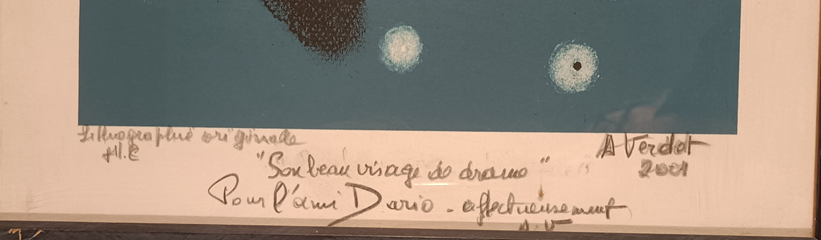 Lithographie originale
H.C
A Verdet
2001
"Son beau visage de drame"
Pour l'ami Dario - affectueusement
A.V